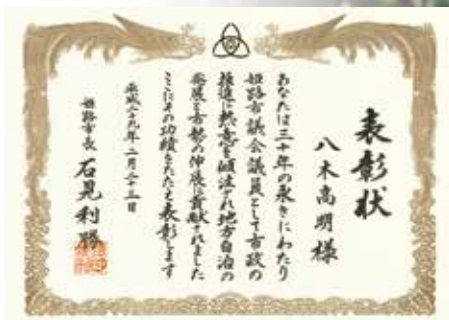 表彰状
八木高明様
あなたは三十年の永きにわたり
姫路市議会議員として市政の
推進に熱意を傾注され地方自治の
発展と市勢の伸長に貢献されました
ここにその功績をたたえ表彰します
平成二十九年二月二十三日
姫路市長 石見利勝